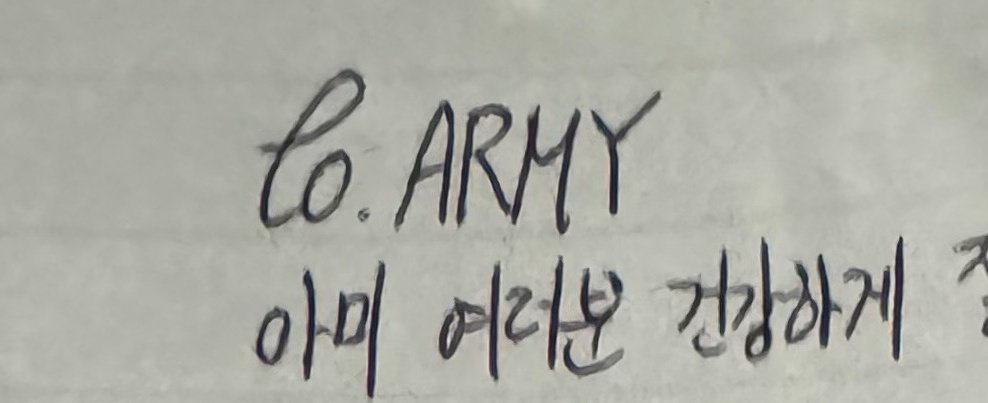 to. ARMY
아미 여러분 건강하게